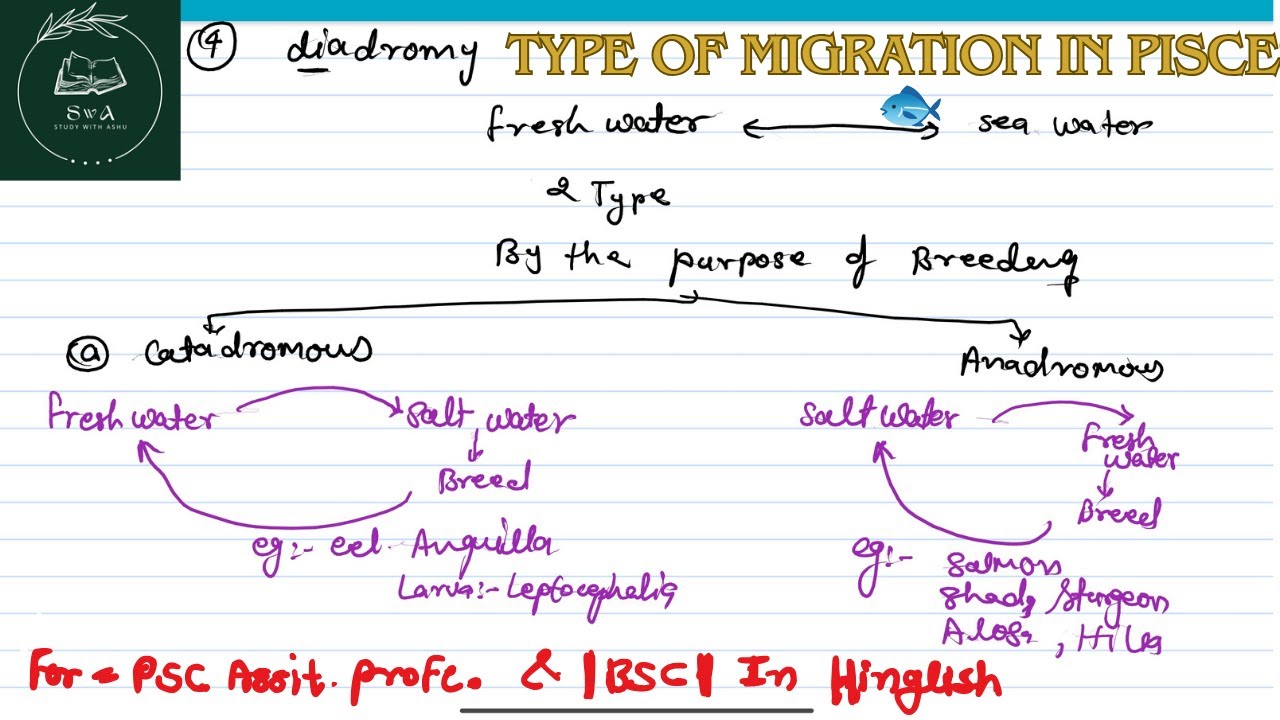 SWA
STUDY WITH ASHU
④ diadromy TYPE OF MIGRATION IN PISCE
fresh water ⟷ sea water
2 Type
By the purpose of Breeding
ⓐ Catadromous
Anadromous
Fresh water → Salt water
↓
Breed
eg:- eel. Anguilla
Larva:- Leptocephalis
Salt water → Fresh water
↓
Breed
eg:- Salmon
Shad, Sturgeon
Alosa, Hilsa
For - PSC Assit. Profe. & |BSC| In Hinglish